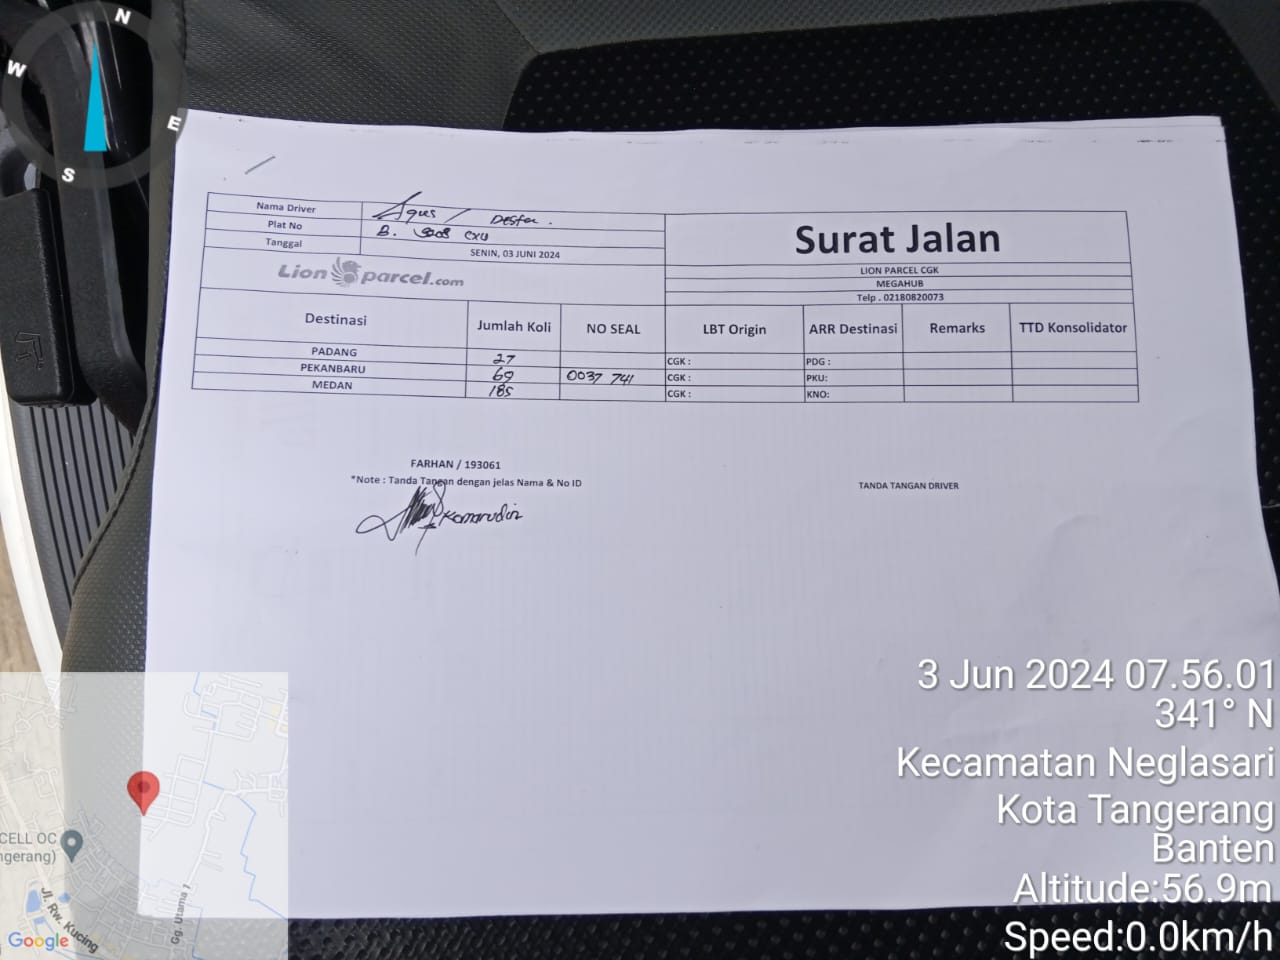 N
W
E
S
Nama Driver Agus /
Plat No B. CXU
Tanggal SENIN, 03 JUNI 2024
Lion parcel.com
Surat Jalan
LION PARCEL CGK
MEGAHUB
Telp . 02180820073
Destinasi Jumlah Koli NO SEAL LBT Origin ARR Destinasi Remarks TTD Konsolidator
PADANG 27 CGK : PDG :
PEKANBARU 69 0037 741 CGK : PKU:
MEDAN 185 CGK : KNO:
FARHAN / 193061
*Note : Tanda Tangan dengan jelas Nama & No ID
Komarudin
TANDA TANGAN DRIVER
3 Jun 2024 07.56.01
341° N
Kecamatan Neglasari
Kota Tangerang
Banten
Altitude:56.9m
Speed:0.0km/h
CELL OC
ngerang)
Jl. Rw. Kucing
Gg. Utama 1
Google